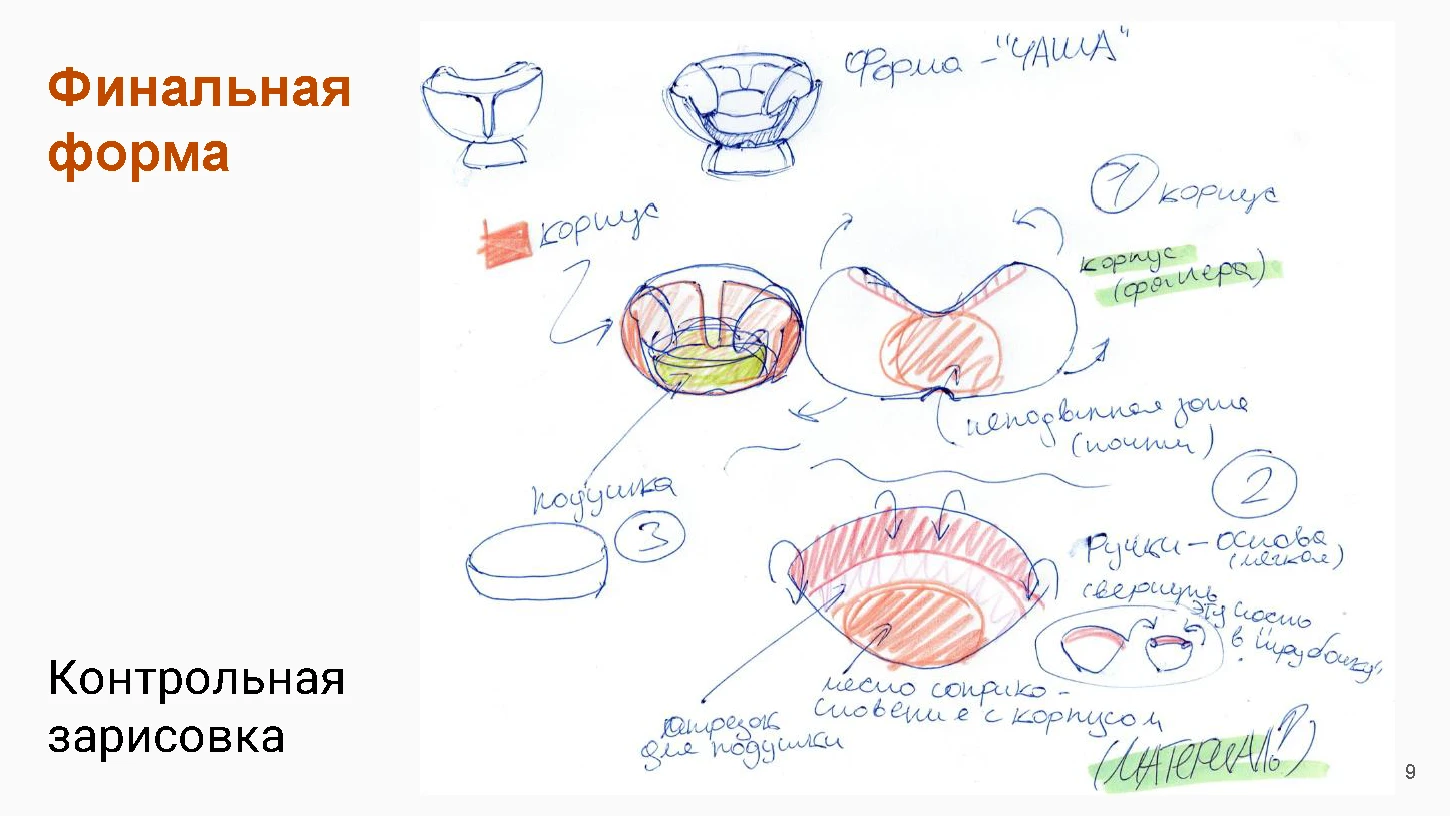 Финальная
форма
Форма - "ЧАША"
1 корпус
корпус
корпус
(фанера)
неподвижная зона
(почти)
подушка
3
2
Ручки - основа
(мягкая)
свернуть
эту часть
в "трубочку"
место соприко -
сновение с корпусом
отрезок
для подушки
(МАТЕРИАЛЬ?)
Контрольная
зарисовка
9